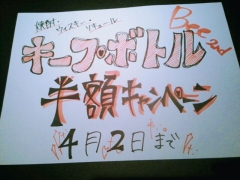 焼酎、ウイスキー、リキュール
Beer and
キープ・ボトル
半額キャンペーン
4月2日まで